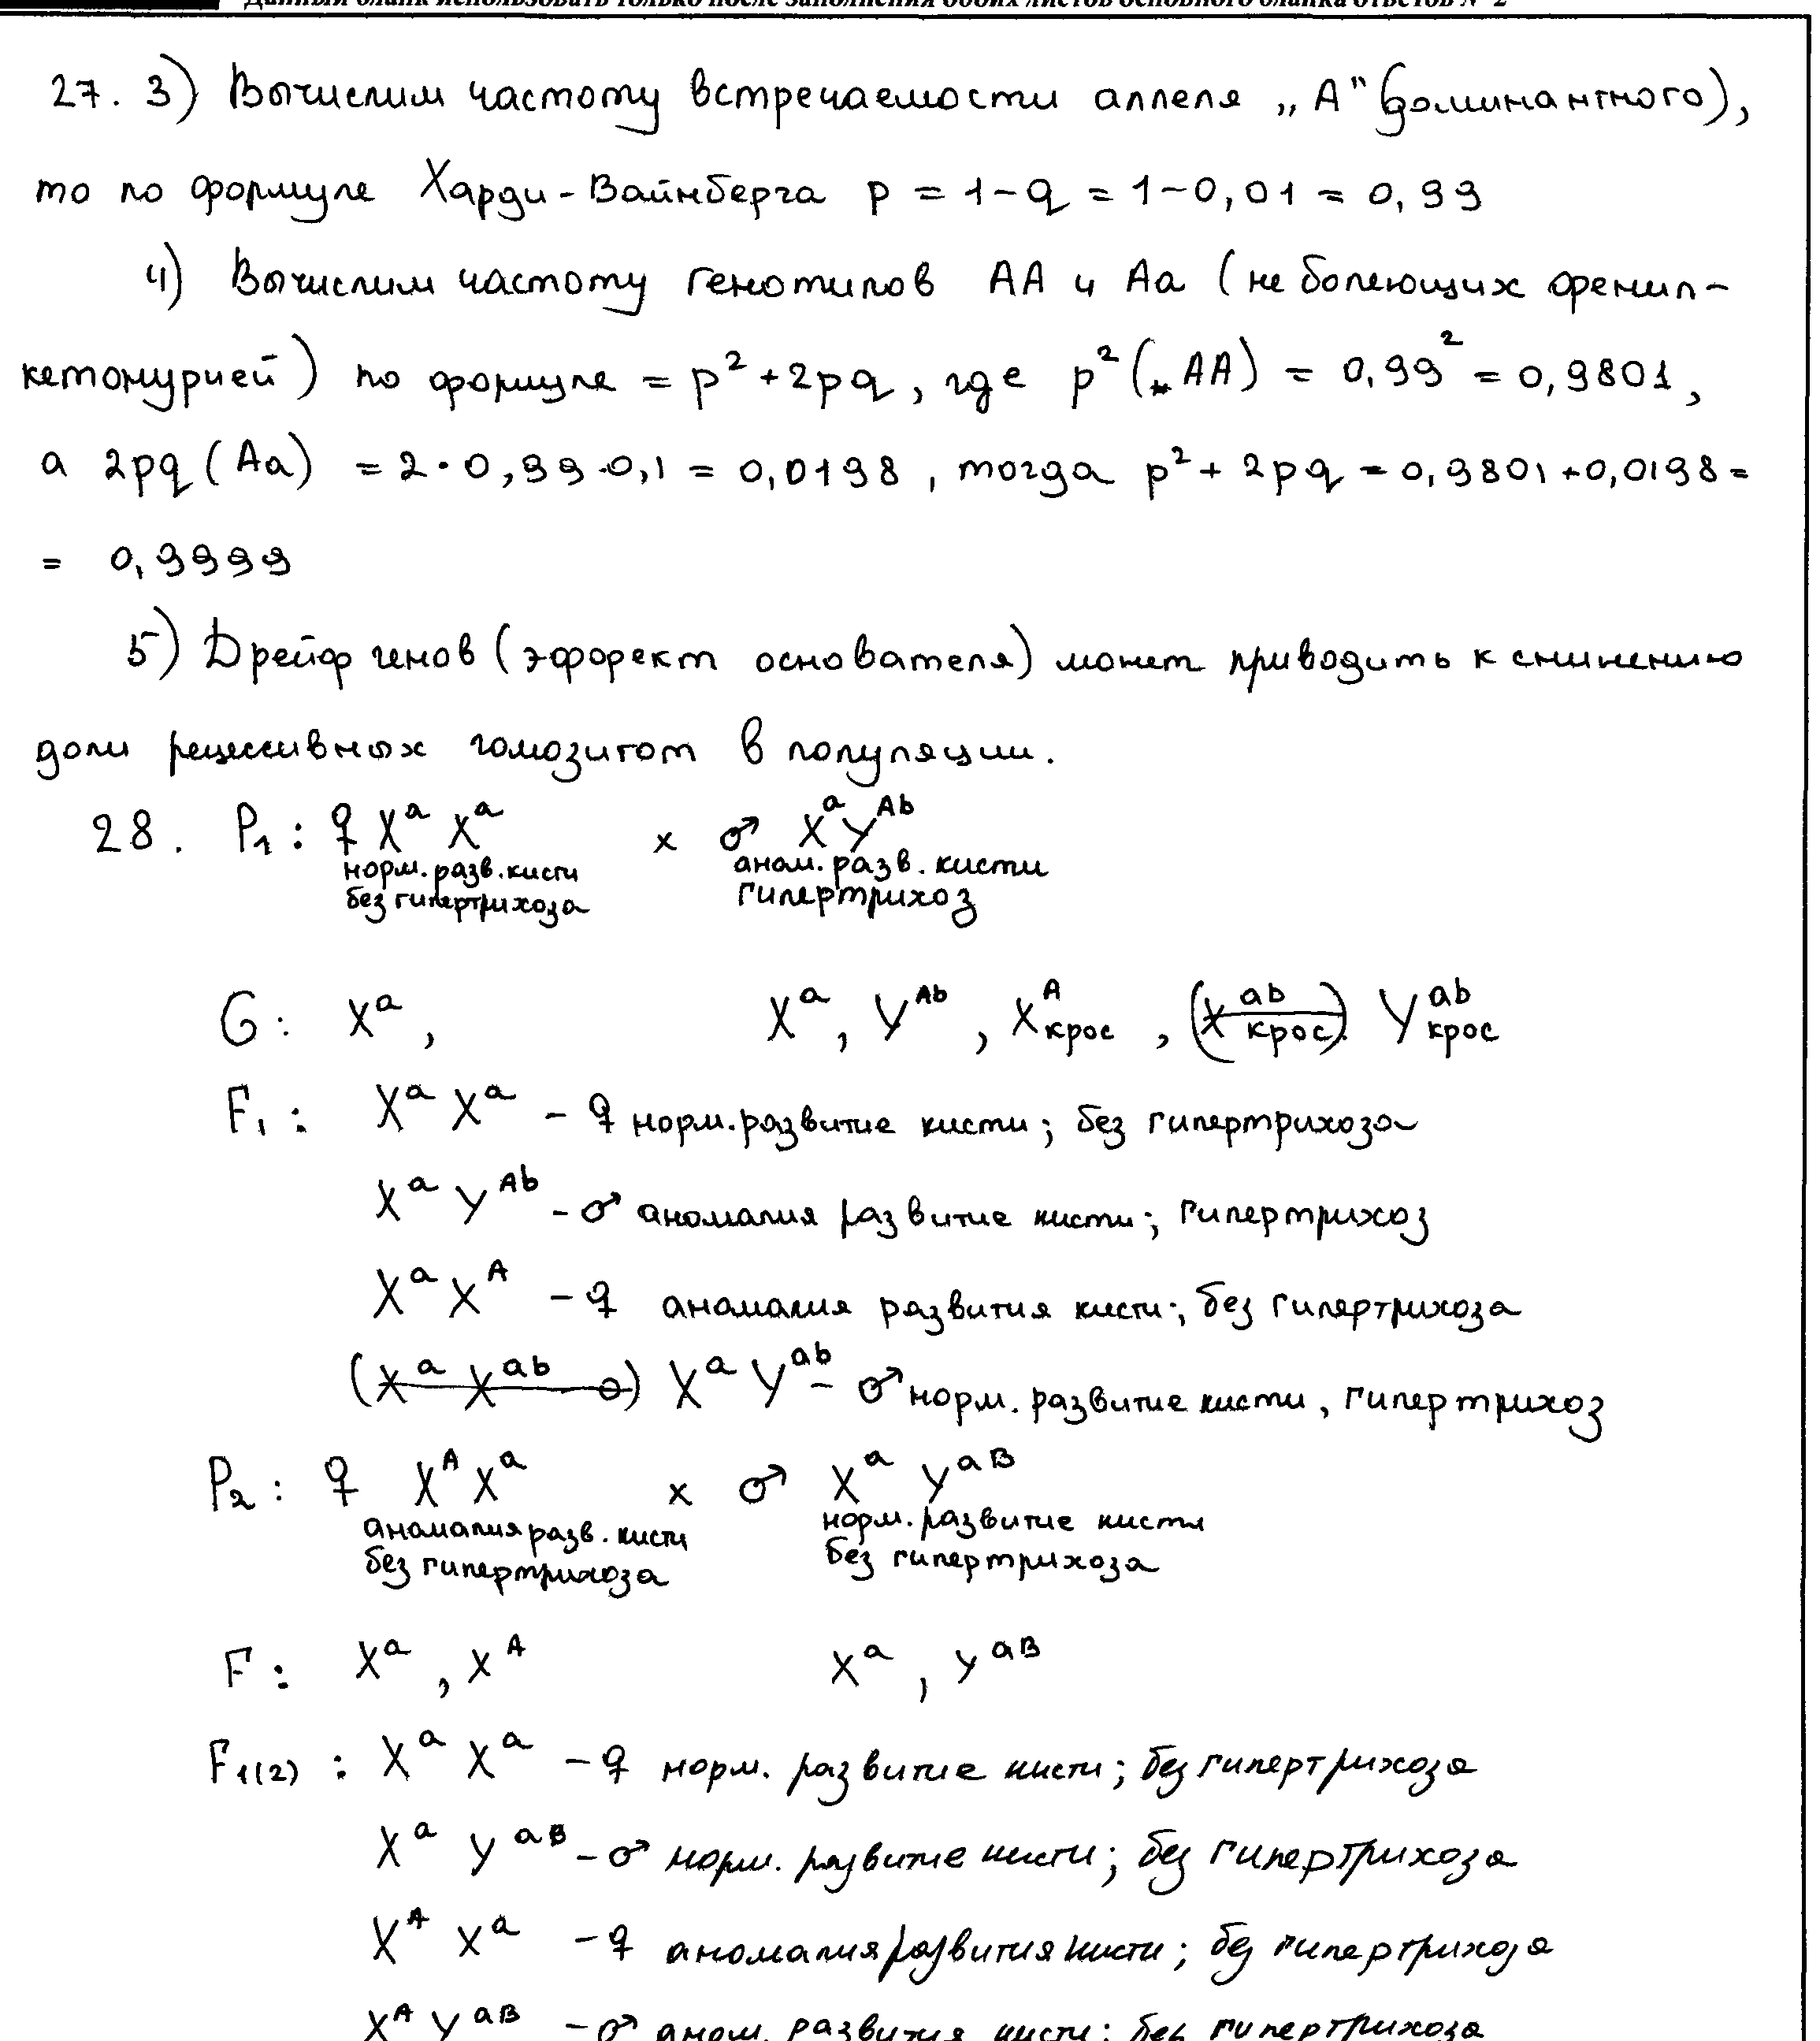 Данный бланк использовать только после заполнения обоих листов основного бланка ответов № 2
27. 3) Вычислим частоту встречаемости аллеля „А" (доминантного),
то по формуле Харди-Вайнберга p = 1-q = 1-0,01 = 0,99
4) Вычислим частоту генотипов АА и Аа (не болеющих фенил-
кетонурией) по формуле = p² + 2pq, где p² (АА) = 0,99² = 0,9801,
а 2pq (Аа) = 2·0,99·0,1 = 0,0198, тогда p² + 2pq = 0,9801+0,0198 =
= 0,9999
5) Дрейф генов (эффект основателя) может приводить к снижению
доли рецессивных гомозигот в популяции.
28. P₁: ♀ Xᵃ Xᵃ x ♂ Xᵃ Yᴬᵇ
норм. разв. кисти аном. разв. кисти
без гипертрихоза гипертрихоз
G: Xᵃ, Xᵃ, Yᴬᵇ, Xᴬ крос, (Xᵃᵇ крос.) Yᵃᵇ крос
F₁: Xᵃ Xᵃ - ♀ норм. развитие кисти; без гипертрихоза
Xᵃ Yᴬᵇ - ♂ аномалия развитие кисти; гипертрихоз
Xᵃ Xᴬ - ♀ аномалия развития кисти; без гипертрихоза
(Xᵃ Xᵃᵇ - о) Xᵃ Yᵃᵇ - ♂ норм. развитие кисти, гипертрихоз
P₂: ♀ Xᴬ Xᵃ x ♂ Xᵃ Yᵃᴮ
аномалия разв. кисти норм. развитие кисти
без гипертрихоза без гипертрихоза
F: Xᵃ, Xᴬ Xᵃ, Yᵃᴮ
F₁₍₂₎: Xᵃ Xᵃ - ♀ норм. развитие кисти; без гипертрихоза
Xᵃ Yᵃᴮ - ♂ норм. развитие кисти; без гипертрихоза
Xᴬ Xᵃ - ♀ аномалия развития кисти; без гипертрихоза
Xᴬ Yᵃᴮ - ♂ аном. развития кисти; без гипертрихоза